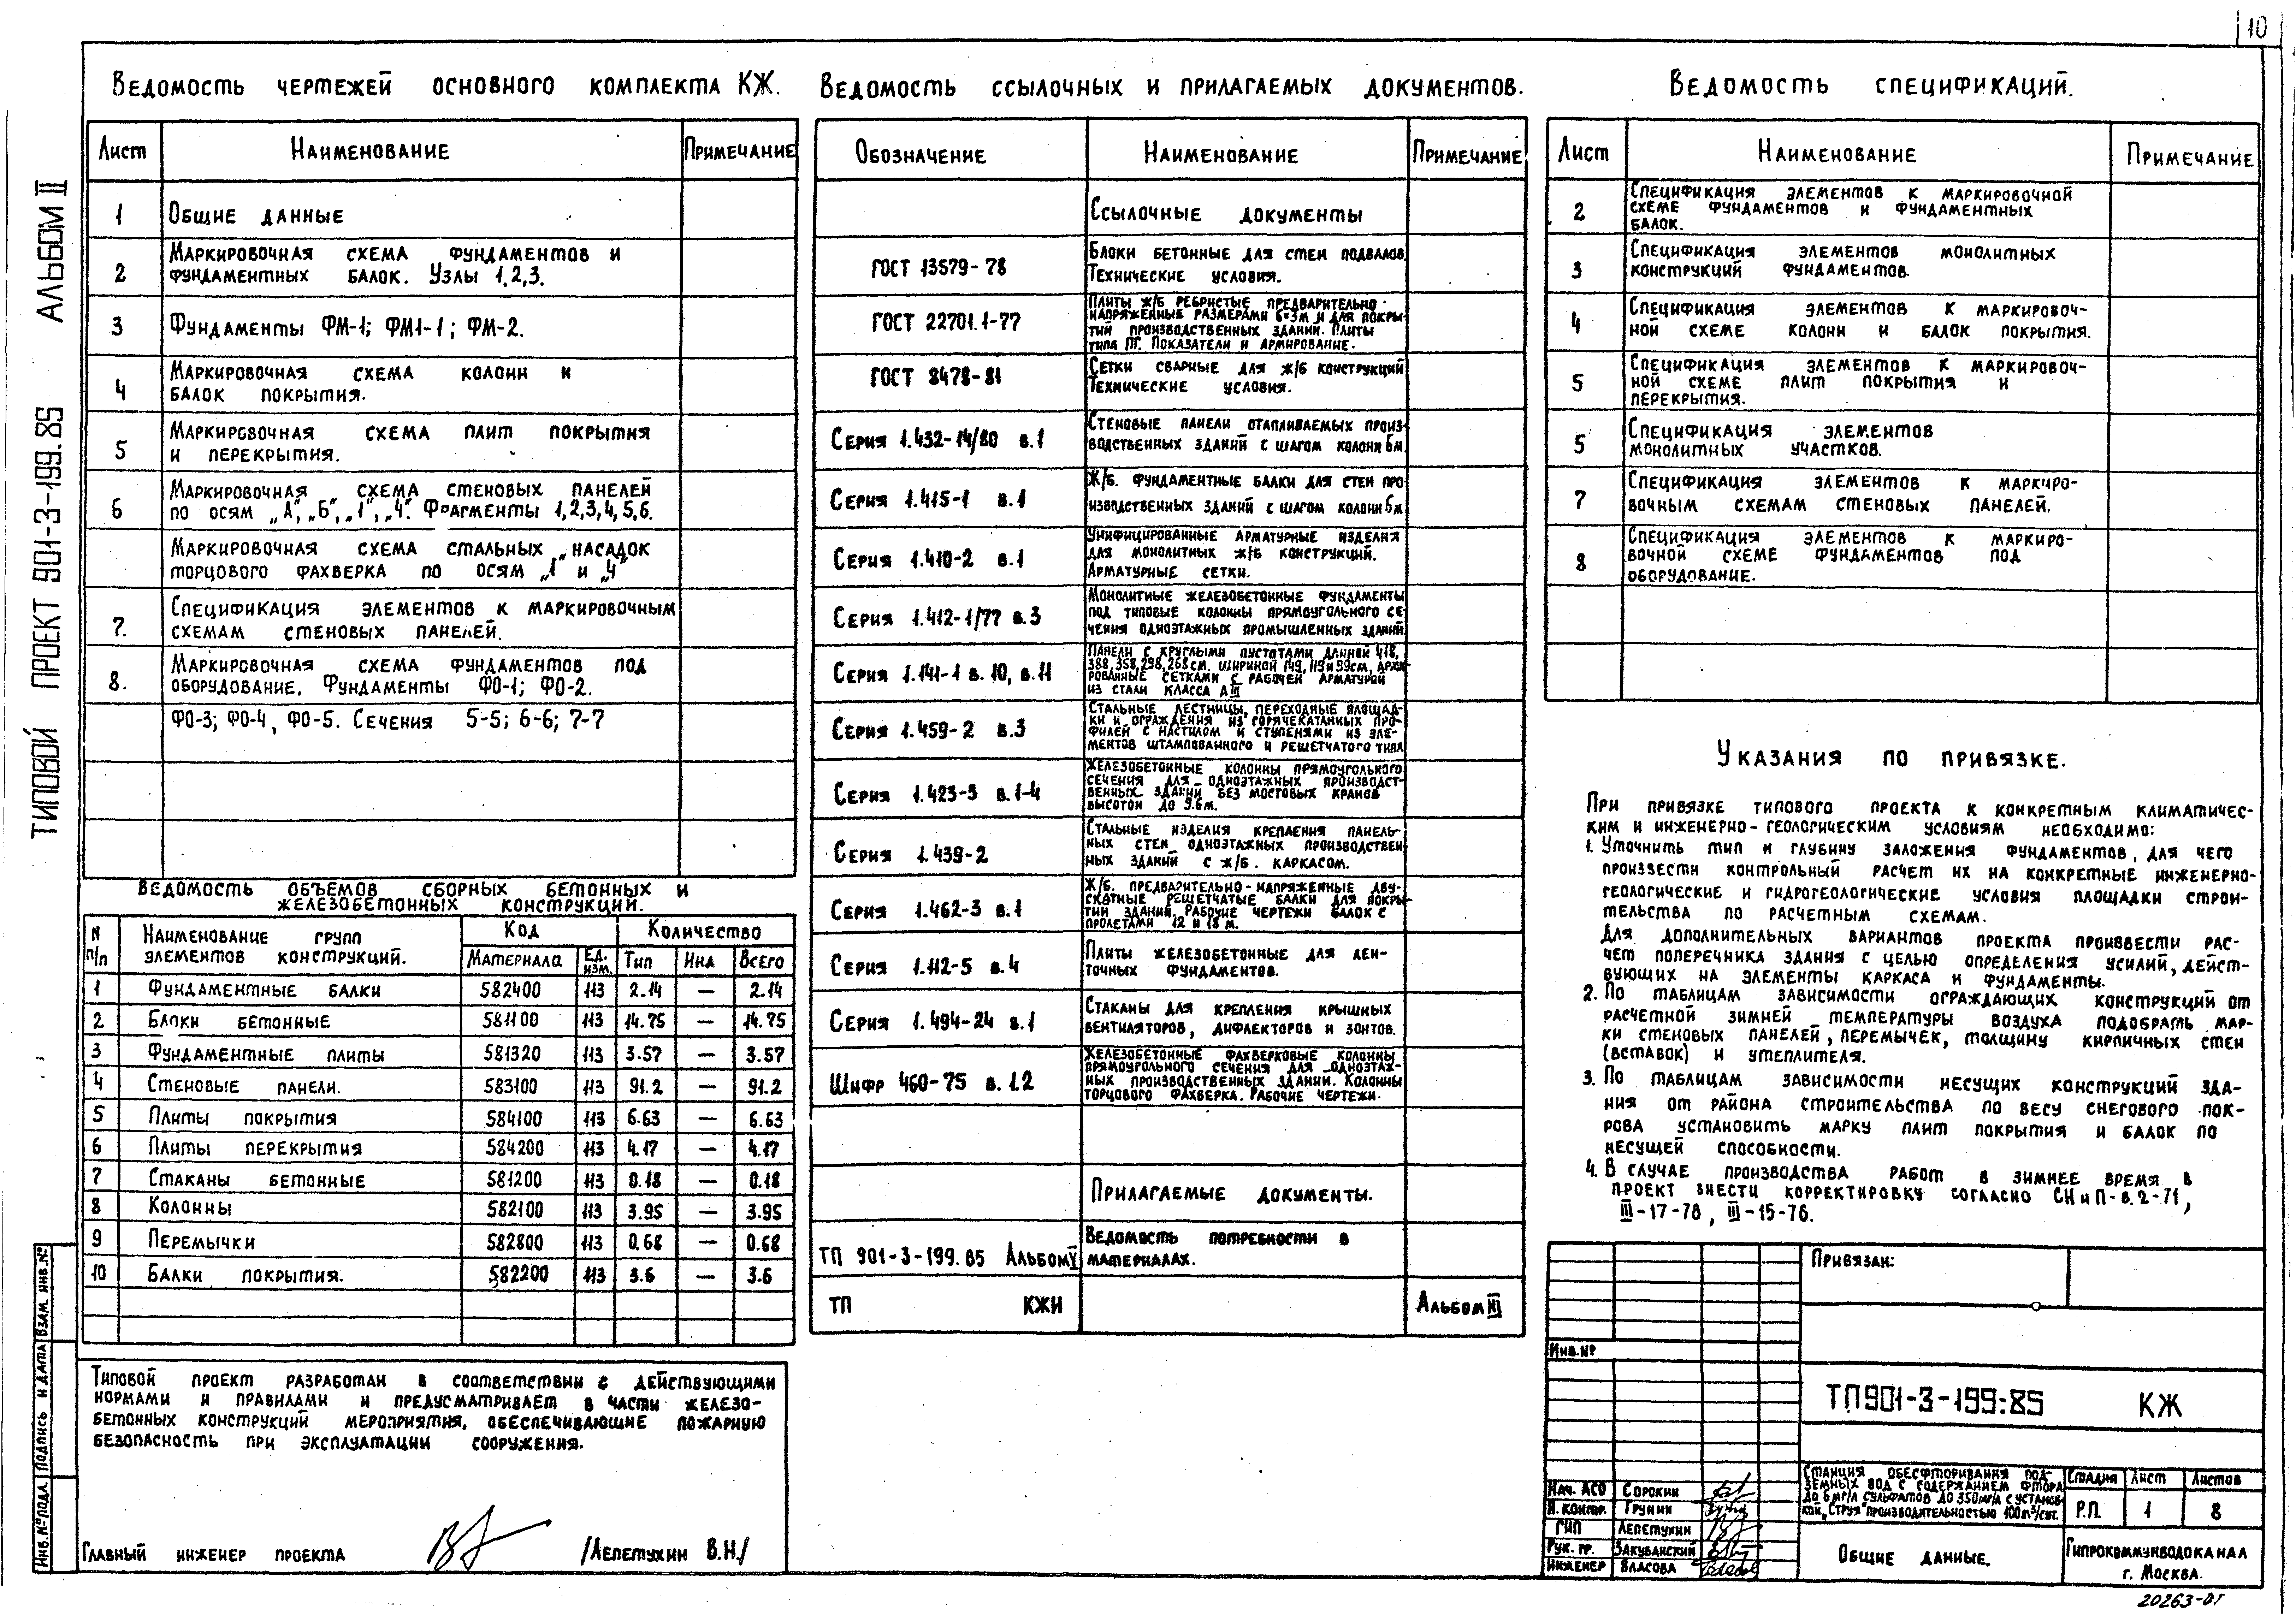 10
ТИПОВОЙ ПРОЕКТ 901-3-199.85 АЛЬБОМ II
ВЕДОМОСТЬ ЧЕРТЕЖЕЙ ОСНОВНОГО КОМПЛЕКТА КЖ.
ЛИСТ НАИМЕНОВАНИЕ ПРИМЕЧАНИЕ
1 ОБЩИЕ ДАННЫЕ
МАРКИРОВОЧНАЯ СХЕМА ФУНДАМЕНТОВ И
2 ФУНДАМЕНТНЫХ БАЛОК. УЗЛЫ 1,2,3.
3 ФУНДАМЕНТЫ ФМ-1; ФМ1-1; ФМ-2.
МАРКИРОВОЧНАЯ СХЕМА КОЛОНН И
4 БАЛОК ПОКРЫТИЯ.
МАРКИРОВОЧНАЯ СХЕМА ПЛИТ ПОКРЫТИЯ
5 И ПЕРЕКРЫТИЯ.
МАРКИРОВОЧНАЯ СХЕМА СТЕНОВЫХ ПАНЕЛЕЙ
6 ПО ОСЯМ „А", „Б", „1", „4". ФРАГМЕНТЫ 1,2,3,4,5,6.
МАРКИРОВОЧНАЯ СХЕМА СТАЛЬНЫХ НАСАДОК
ТОРЦОВОГО ФАХВЕРКА ПО ОСЯМ „1" И „4"
СПЕЦИФИКАЦИЯ ЭЛЕМЕНТОВ К МАРКИРОВОЧНЫМ
7. СХЕМАМ СТЕНОВЫХ ПАНЕЛЕЙ.
МАРКИРОВОЧНАЯ СХЕМА ФУНДАМЕНТОВ ПОД
8. ОБОРУДОВАНИЕ. ФУНДАМЕНТЫ ФО-1; ФО-2.
ФО-3; ФО-4, ФО-5. СЕЧЕНИЯ 5-5; 6-6; 7-7
ВЕДОМОСТЬ ОБЪЕМОВ СБОРНЫХ БЕТОННЫХ И
ЖЕЛЕЗОБЕТОННЫХ КОНСТРУКЦИЙ.
N п/п НАИМЕНОВАНИЕ ГРУПП ЭЛЕМЕНТОВ КОНСТРУКЦИЙ. КОД КОЛИЧЕСТВО
МАТЕРИАЛА ЕД. ИЗМ. ТИП ИНД ВСЕГО
1 ФУНДАМЕНТНЫЕ БАЛКИ 582400 113 2.14 — 2.14
2 БЛОКИ БЕТОННЫЕ 581100 113 14.75 — 14.75
3 ФУНДАМЕНТНЫЕ ПЛИТЫ 581320 113 3.57 — 3.57
4 СТЕНОВЫЕ ПАНЕЛИ. 583100 113 91.2 — 91.2
5 ПЛИТЫ ПОКРЫТИЯ 584100 113 6.63 — 6.63
6 ПЛИТЫ ПЕРЕКРЫТИЯ 584200 113 4.17 — 4.17
7 СТАКАНЫ БЕТОННЫЕ 581200 113 0.18 — 0.18
8 КОЛОННЫ 582100 113 3.95 — 3.95
9 ПЕРЕМЫЧКИ 582800 113 0.68 — 0.68
10 БАЛКИ ПОКРЫТИЯ. 582200 113 3.6 — 3.6
ТИПОВОЙ ПРОЕКТ РАЗРАБОТАН В СООТВЕТСТВИИ С ДЕЙСТВУЮЩИМИ
НОРМАМИ И ПРАВИЛАМИ И ПРЕДУСМАТРИВАЕТ В ЧАСТИ ЖЕЛЕЗО-
БЕТОННЫХ КОНСТРУКЦИЙ МЕРОПРИЯТИЯ, ОБЕСПЕЧИВАЮЩИЕ ПОЖАРНУЮ
БЕЗОПАСНОСТЬ ПРИ ЭКСПЛУАТАЦИИ СООРУЖЕНИЯ.
ГЛАВНЫЙ ИНЖЕНЕР ПРОЕКТА /ЛЕПЕТУХИН В.Н./
ИНВ.№ ПОДЛ. ПОДПИСЬ И ДАТА ВЗАМ. ИНВ.№
ВЕДОМОСТЬ ССЫЛОЧНЫХ И ПРИЛАГАЕМЫХ ДОКУМЕНТОВ.
ОБОЗНАЧЕНИЕ НАИМЕНОВАНИЕ ПРИМЕЧАНИЕ
ССЫЛОЧНЫЕ ДОКУМЕНТЫ
ГОСТ 13579-78 БЛОКИ БЕТОННЫЕ ДЛЯ СТЕН ПОДВАЛОВ
ТЕХНИЧЕСКИЕ УСЛОВИЯ.
ГОСТ 22701.1-77 ПЛИТЫ Ж/Б РЕБРИСТЫЕ ПРЕДВАРИТЕЛЬНО
НАПРЯЖЕННЫЕ РАЗМЕРАМИ 6×3М ДЛЯ ПОКРЫ-
ТИЙ ПРОИЗВОДСТВЕННЫХ ЗДАНИЙ. ПЛИТЫ
ТИПА ПГ. ПОКАЗАТЕЛИ И АРМИРОВАНИЕ.
ГОСТ 8478-81 СЕТКИ СВАРНЫЕ ДЛЯ Ж/Б КОНСТРУКЦИЙ
ТЕХНИЧЕСКИЕ УСЛОВИЯ.
СЕРИЯ 1.432-14/80 В.1 СТЕНОВЫЕ ПАНЕЛИ ОТАПЛИВАЕМЫХ ПРОИЗ-
ВОДСТВЕННЫХ ЗДАНИЙ С ШАГОМ КОЛОНН 6М.
СЕРИЯ 1.415-1 В.1 Ж/Б. ФУНДАМЕНТНЫЕ БАЛКИ ДЛЯ СТЕН ПРО
ИЗВОДСТВЕННЫХ ЗДАНИЙ С ШАГОМ КОЛОНН 6М
СЕРИЯ 1.410-2 В.1 УНИФИЦИРОВАННЫЕ АРМАТУРНЫЕ ИЗДЕЛИЯ
ДЛЯ МОНОЛИТНЫХ Ж/Б КОНСТРУКЦИЙ.
АРМАТУРНЫЕ СЕТКИ.
СЕРИЯ 1.412-1/77 В.3 МОНОЛИТНЫЕ ЖЕЛЕЗОБЕТОННЫЕ ФУНДАМЕНТЫ
ПОД ТИПОВЫЕ КОЛОННЫ ПРЯМОУГОЛЬНОГО СЕ-
ЧЕНИЯ ОДНОЭТАЖНЫХ ПРОМЫШЛЕННЫХ ЗДАНИЙ
СЕРИЯ 1.141-1 В.10, В.11 ПАНЕЛИ С КРУГЛЫМИ ПУСТОТАМИ ДЛИНОЙ 418,
388,358,298,268СМ. ШИРИНОЙ 149,119 И 99СМ, АРМИ-
РОВАННЫЕ СЕТКАМИ С РАБОЧЕЙ АРМАТУРОЙ
ИЗ СТАЛИ КЛАССА АIII
СЕРИЯ 1.459-2 В.3 СТАЛЬНЫЕ ЛЕСТНИЦЫ, ПЕРЕХОДНЫЕ ПЛОЩАД-
КИ И ОГРАЖДЕНИЯ ИЗ ГОРЯЧЕКАТАННЫХ ПРО-
ФИЛЕЙ С НАСТИЛОМ И СТУПЕНЯМИ ИЗ ЭЛЕ-
МЕНТОВ ШТАМПОВАННОГО И РЕШЕТЧАТОГО ТИПА
СЕРИЯ 1.423-3 В.1-4 ЖЕЛЕЗОБЕТОННЫЕ КОЛОННЫ ПРЯМОУГОЛЬНОГО
СЕЧЕНИЯ ДЛЯ ОДНОЭТАЖНЫХ ПРОИЗВОДСТ-
ВЕННЫХ ЗДАНИЙ БЕЗ МОСТОВЫХ КРАНОВ
ВЫСОТОЙ ДО 9.6М.
СЕРИЯ 1.439-2 СТАЛЬНЫЕ ИЗДЕЛИЯ КРЕПЛЕНИЯ ПАНЕЛЬ-
НЫХ СТЕН ОДНОЭТАЖНЫХ ПРОИЗВОДСТВЕН
НЫХ ЗДАНИЙ С Ж/Б. КАРКАСОМ.
СЕРИЯ 1.462-3 В.1 Ж/Б. ПРЕДВАРИТЕЛЬНО-НАПРЯЖЕННЫЕ ДВУ-
СКАТНЫЕ РЕШЕТЧАТЫЕ БАЛКИ ДЛЯ ПОКРЫ-
ТИЙ ЗДАНИЙ. РАБОЧИЕ ЧЕРТЕЖИ БАЛОК С
ПРОЛЕТАМИ 12 И 18 М.
СЕРИЯ 1.112-5 В.4 ПЛИТЫ ЖЕЛЕЗОБЕТОННЫЕ ДЛЯ ЛЕН-
ТОЧНЫХ ФУНДАМЕНТОВ.
СЕРИЯ 1.494-24 В.1 СТАКАНЫ ДЛЯ КРЕПЛЕНИЯ КРЫШНЫХ
ВЕНТИЛЯТОРОВ, ДИФЛЕКТОРОВ И ЗОНТОВ.
ШИФР 460-75 В.1.2 ЖЕЛЕЗОБЕТОННЫЕ ФАХВЕРКОВЫЕ КОЛОННЫ
ПРЯМОУГОЛЬНОГО СЕЧЕНИЯ ДЛЯ ОДНОЭТАЖ-
НЫХ ПРОИЗВОДСТВЕННЫХ ЗДАНИЙ. КОЛОННЫ
ТОРЦОВОГО ФАХВЕРКА. РАБОЧИЕ ЧЕРТЕЖИ.
ПРИЛАГАЕМЫЕ ДОКУМЕНТЫ.
ТП 901-3-199.85 АЛЬБОМ V ВЕДОМОСТЬ ПОТРЕБНОСТИ В
МАТЕРИАЛАХ.
ТП КЖИ АЛЬБОМ III
ВЕДОМОСТЬ СПЕЦИФИКАЦИЙ.
ЛИСТ НАИМЕНОВАНИЕ ПРИМЕЧАНИЕ
СПЕЦИФИКАЦИЯ ЭЛЕМЕНТОВ К МАРКИРОВОЧНОЙ
2 СХЕМЕ ФУНДАМЕНТОВ И ФУНДАМЕНТНЫХ
БАЛОК.
СПЕЦИФИКАЦИЯ ЭЛЕМЕНТОВ МОНОЛИТНЫХ
3 КОНСТРУКЦИЙ ФУНДАМЕНТОВ.
СПЕЦИФИКАЦИЯ ЭЛЕМЕНТОВ К МАРКИРОВОЧ-
4 НОЙ СХЕМЕ КОЛОНН И БАЛОК ПОКРЫТИЯ.
СПЕЦИФИКАЦИЯ ЭЛЕМЕНТОВ К МАРКИРОВОЧ-
5 НОЙ СХЕМЕ ПЛИТ ПОКРЫТИЯ И
ПЕРЕКРЫТИЯ.
СПЕЦИФИКАЦИЯ ЭЛЕМЕНТОВ
5 МОНОЛИТНЫХ УЧАСТКОВ.
СПЕЦИФИКАЦИЯ ЭЛЕМЕНТОВ К МАРКИРО-
7 ВОЧНЫМ СХЕМАМ СТЕНОВЫХ ПАНЕЛЕЙ.
СПЕЦИФИКАЦИЯ ЭЛЕМЕНТОВ К МАРКИРО-
8 ВОЧНОЙ СХЕМЕ ФУНДАМЕНТОВ ПОД
ОБОРУДОВАНИЕ.
УКАЗАНИЯ ПО ПРИВЯЗКЕ.
ПРИ ПРИВЯЗКЕ ТИПОВОГО ПРОЕКТА К КОНКРЕТНЫМ КЛИМАТИЧЕС-
КИМ И ИНЖЕНЕРНО-ГЕОЛОГИЧЕСКИМ УСЛОВИЯМ НЕОБХОДИМО:
1. УТОЧНИТЬ ТИП И ГЛУБИНУ ЗАЛОЖЕНИЯ ФУНДАМЕНТОВ, ДЛЯ ЧЕГО
ПРОИЗВЕСТИ КОНТРОЛЬНЫЙ РАСЧЕТ ИХ НА КОНКРЕТНЫЕ ИНЖЕНЕРНО-
ГЕОЛОГИЧЕСКИЕ И ГИДРОГЕОЛОГИЧЕСКИЕ УСЛОВИЯ ПЛОЩАДКИ СТРОИ-
ТЕЛЬСТВА ПО РАСЧЕТНЫМ СХЕМАМ.
ДЛЯ ДОПОЛНИТЕЛЬНЫХ ВАРИАНТОВ ПРОЕКТА ПРОИЗВЕСТИ РАС-
ЧЕТ ПОПЕРЕЧНИКА ЗДАНИЯ С ЦЕЛЬЮ ОПРЕДЕЛЕНИЯ УСИЛИЙ, ДЕЙСТ-
ВУЮЩИХ НА ЭЛЕМЕНТЫ КАРКАСА И ФУНДАМЕНТЫ.
2. ПО ТАБЛИЦАМ ЗАВИСИМОСТИ ОГРАЖДАЮЩИХ КОНСТРУКЦИЙ ОТ
РАСЧЕТНОЙ ЗИМНЕЙ ТЕМПЕРАТУРЫ ВОЗДУХА ПОДОБРАТЬ МАР-
КИ СТЕНОВЫХ ПАНЕЛЕЙ, ПЕРЕМЫЧЕК, ТОЛЩИНУ КИРПИЧНЫХ СТЕН
(ВСТАВОК) И УТЕПЛИТЕЛЯ.
3. ПО ТАБЛИЦАМ ЗАВИСИМОСТИ НЕСУЩИХ КОНСТРУКЦИЙ ЗДА-
НИЯ ОТ РАЙОНА СТРОИТЕЛЬСТВА ПО ВЕСУ СНЕГОВОГО ПОК-
РОВА УСТАНОВИТЬ МАРКУ ПЛИТ ПОКРЫТИЯ И БАЛОК ПО
НЕСУЩЕЙ СПОСОБНОСТИ.
4. В СЛУЧАЕ ПРОИЗВОДСТВА РАБОТ В ЗИМНЕЕ ВРЕМЯ В
ПРОЕКТ ВНЕСТИ КОРРЕКТИРОВКУ СОГЛАСНО СНиП-В.2-71,
III-17-78, III-15-76.
ПРИВЯЗАН:
ИНВ.№
ТП901-3-199.85 КЖ
НАЧ. АСО СОРОКИН
Н. КОНТР. ГРУНИН
ГИП ЛЕПЕТУХИН
РУК. ГР. ЗАКУБАНСКИЙ
ИНЖЕНЕР ВЛАСОВА
СТАНЦИЯ ОБЕСФТОРИВАНИЯ ПОД-
ЗЕМНЫХ ВОД С СОДЕРЖАНИЕМ ФТОРА
ДО 6МГ/Л СУЛЬФАТОВ ДО 350МГ/Л С УСТАНОВ-
КОЙ „СТРУЯ" ПРОИЗВОДИТЕЛЬНОСТЬЮ 100М³/СУТ.
СТАДИЯ ЛИСТ ЛИСТОВ
Р.П. 1 8
ОБЩИЕ ДАННЫЕ.
ГИПРОКОММУНВОДОКАНАЛ
Г. МОСКВА.
20263-01